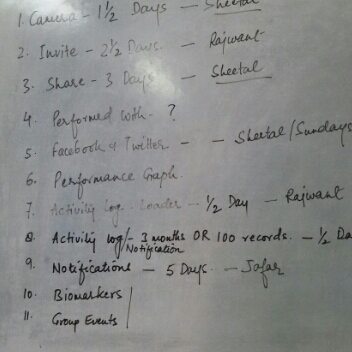 1. Camera - 1 1/2 Days - Sheetal
2. Invite - 2 1/2 Days - Rajwant
3. Share - 3 Days - Sheetal
4. Performed with - ?
5. Facebook & Twitter - - Sheetal/Sundays
6. Performance Graph.
7. Activity Log - Loader - 1/2 Day - Rajwant
8. Activity log/- 3 months OR 100 records. - 1/2 Da
Notification
9. Notifications - 5 Days. - Jafar
10. Biomarkers
11. Group Events